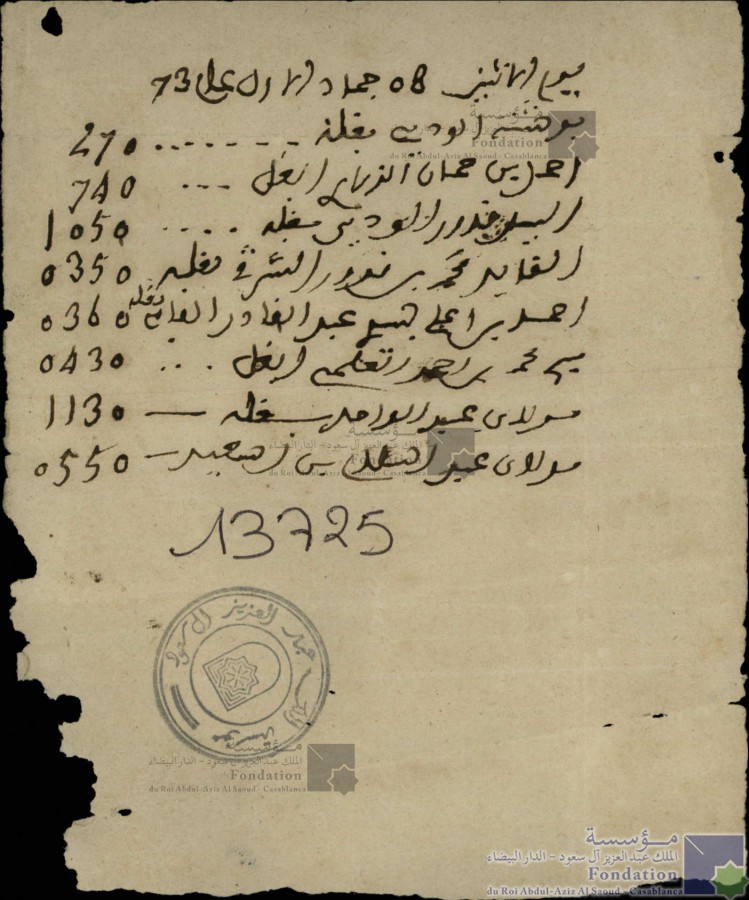 يوم الاثنين 08 جماد الاول عام 73
بوشتى الوديي بغلة ........ 270
احمد بن حمان الزراري ابغل ... 740
قدور الوديي بغلة .... 1050
القايد محمد بن قدور الشرقي بغلة 0350
احمد بن اعلي عبد القادر بغلة 0360
سي محمد بن احمد ابغل ... 0430
مولاي عبد الواحد بغلة — 1130
مولاي عبد السلام بن السعيد — 0550
13725
مؤسسة الملك عبد العزيز آل سعود
مؤسسة
الملك عبد العزيز آل سعود - الدار البيضاء
Fondation
du Roi Abdul-Aziz Al Saoud - Casablanca